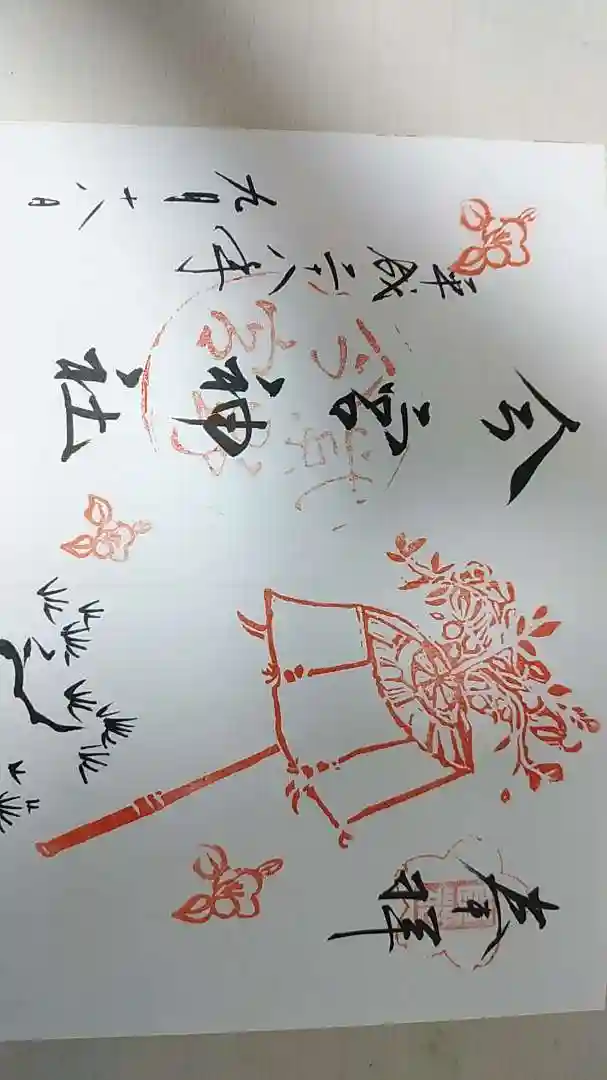 奉拝
今宮神社
平成二十八年九月十八日